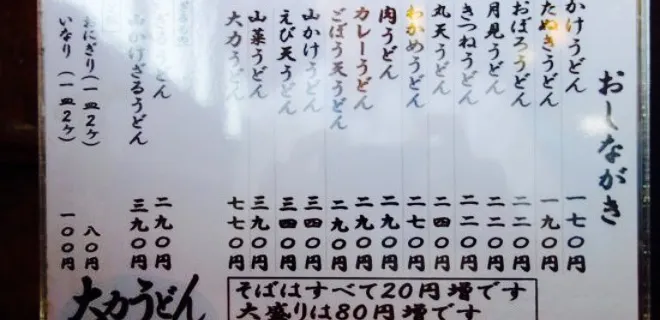 おしながき
かけうどん 一七〇円
たぬきうどん 一九〇円
おぼろうどん 二二〇円
月見うどん 二二〇円
きつねうどん 二二〇円
丸天うどん 二四〇円
わかめうどん 二七〇円
肉うどん 二九〇円
カレーうどん 二九〇円
ごぼう天うどん 二九〇円
山かけうどん 三四〇円
えび天うどん 三四〇円
山菜うどん 三九〇円
大力うどん 七七〇円
ざるうどん 二九〇円
山かけざるうどん 三九〇円
おにぎり(一皿2ヶ) 八〇円
いなり(一皿2ヶ) 一〇〇円
そばはすべて20円増です
大盛りは80円増です
大力うどん